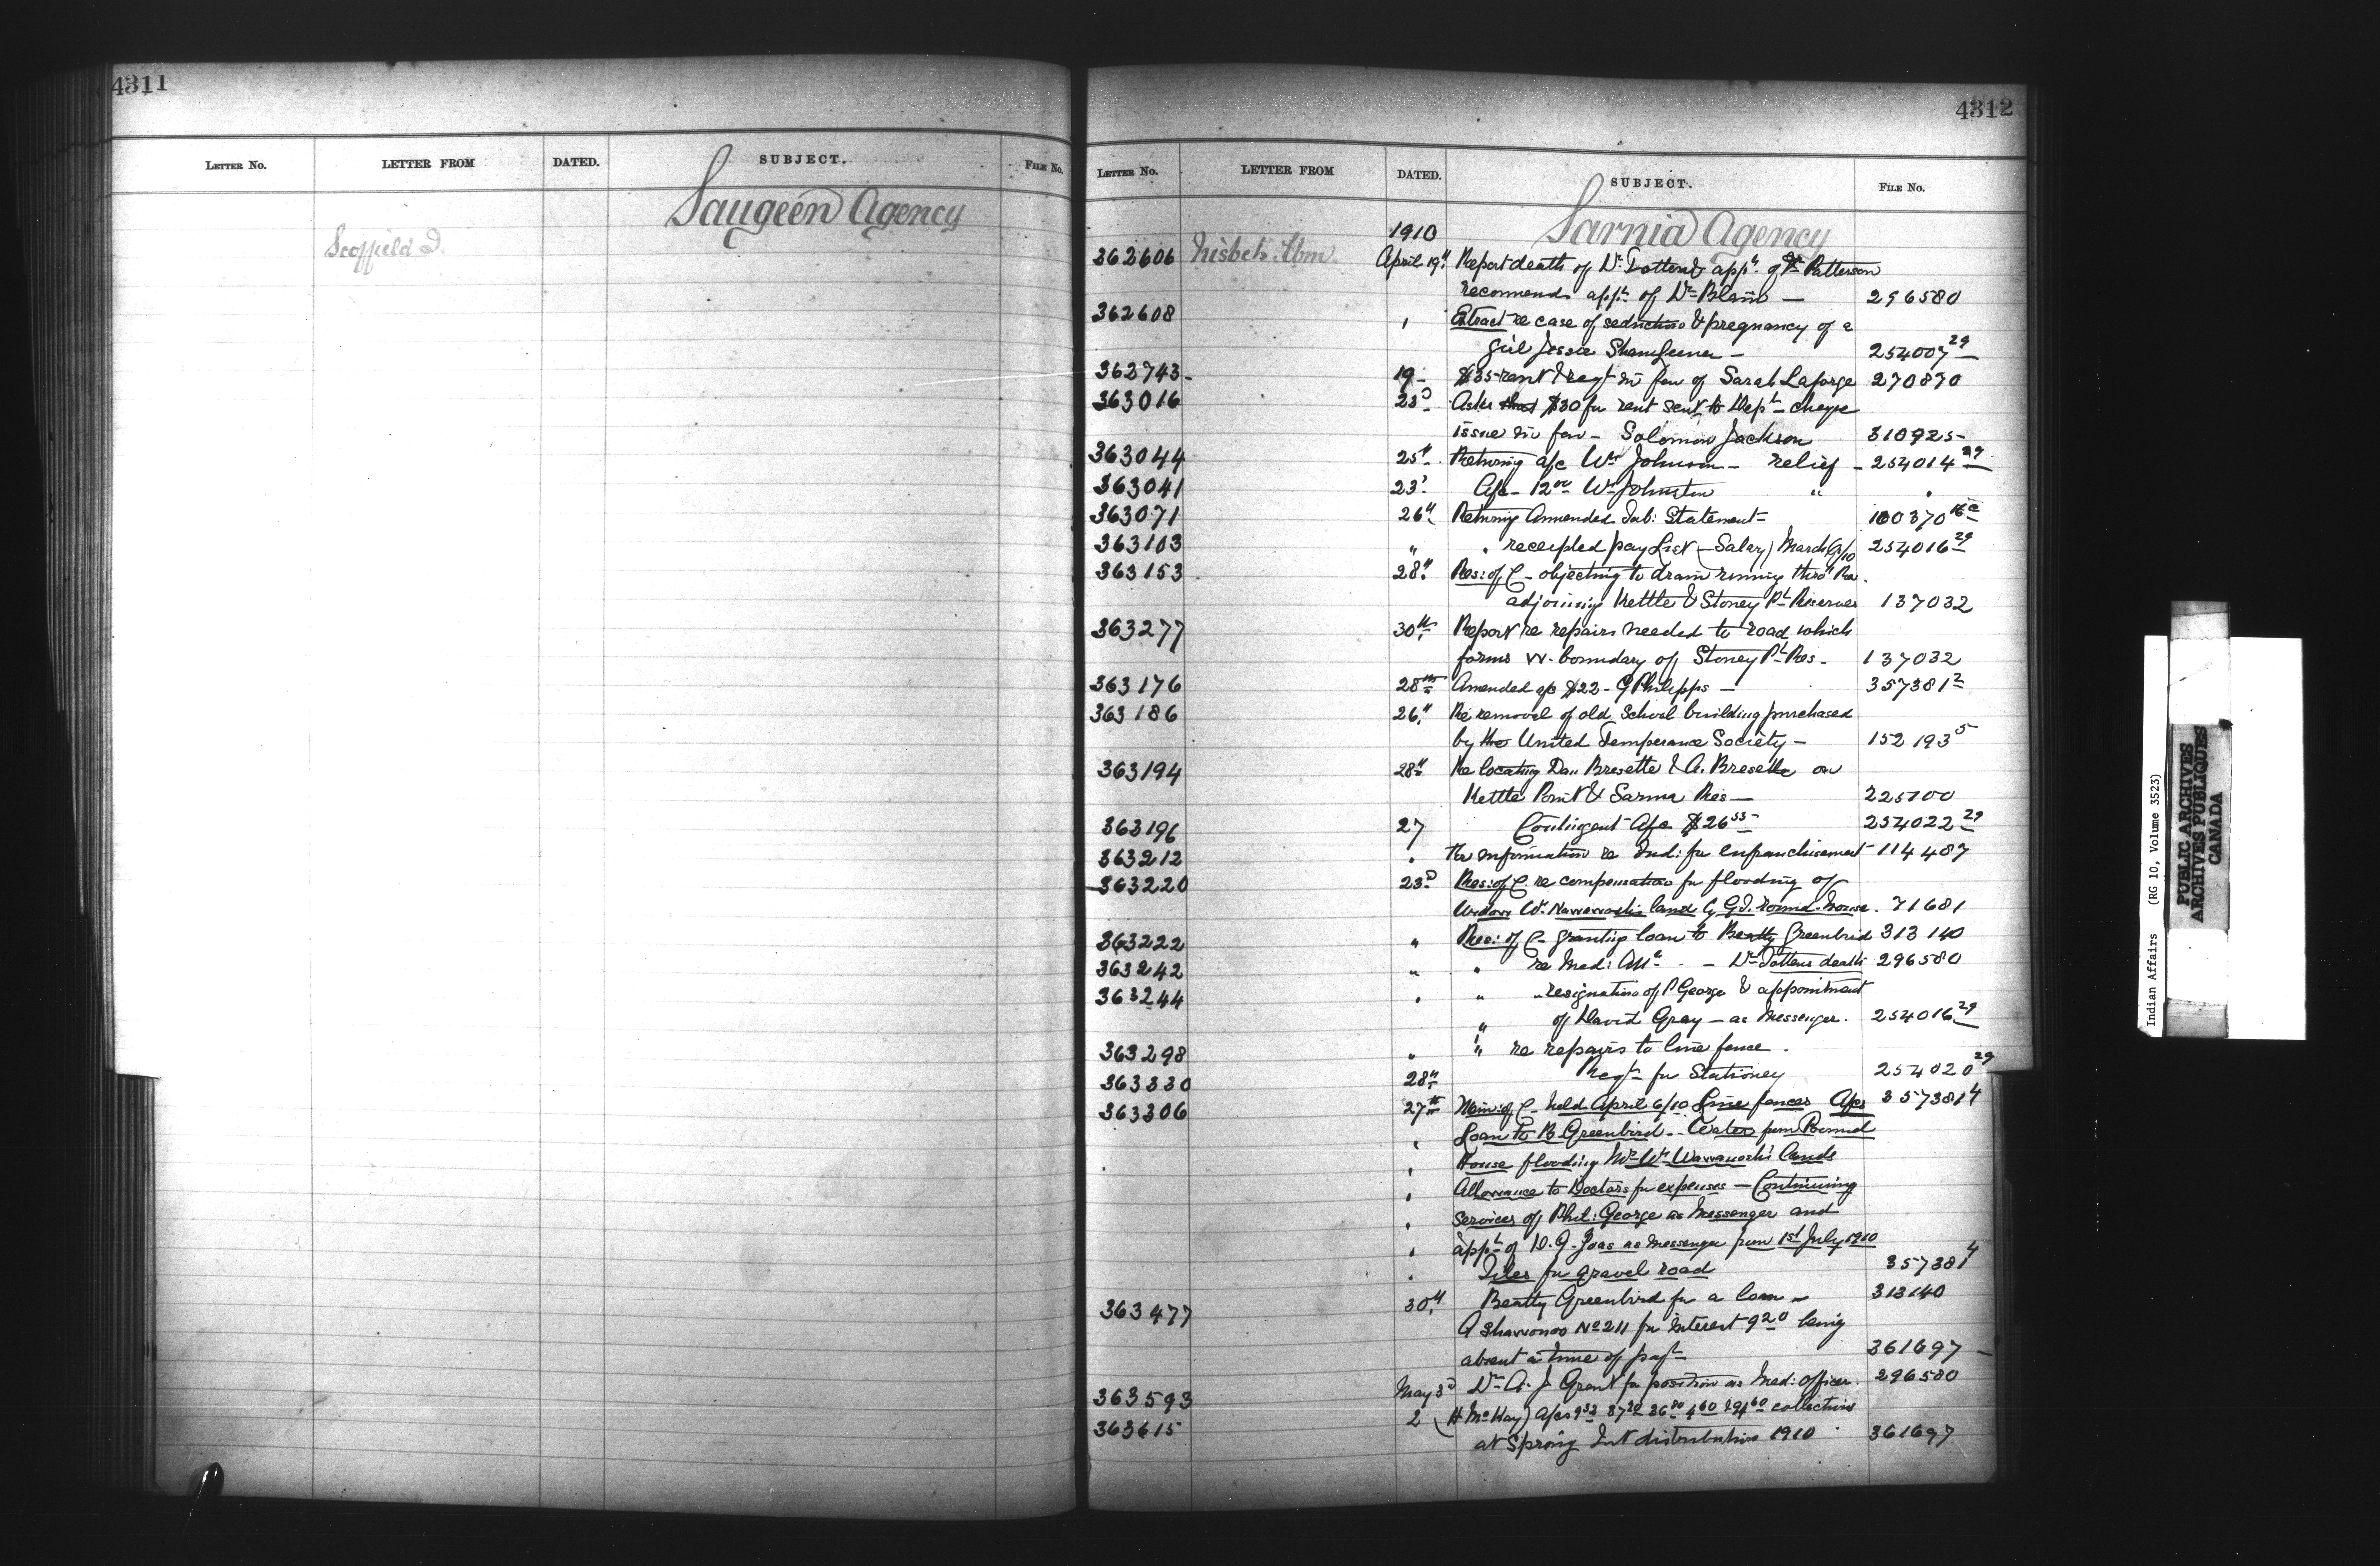 4311
LETTER No. LETTER FROM DATED. SUBJECT. FILE No.
Saugeen Agency
Scoffield J.
4312
LETTER No. LETTER FROM DATED. SUBJECT. FILE No.
1910 Sarnia Agency
362606 Nisbet Wm. April 19" Report death of Dr Totten & appt. of Dr Patterson
recommends appt of Dr Blain — 296580
362608 " Extract re case of seduction & pregnancy of a
girl Jessie — 254007 29
362743 - 19 - $35 rent & reqt in fav of Sarah Laforge 270870
363016 23d Asks that $30 for rent sent to Dept - cheque
issue in fav - Solomon Jackson 310925 -
363044 25" Returning a/c Wm Johnson - relief - 254014 29
363041 23' A/c - 12 00 Wm Johnston " "
363071 26" Returning Amended Sub: Statement - 100370 16c
363103 " " receipted pay list (Salary) March 254016 29
363153 28" Res: of C - objecting to drain running thro' Res.
adjoining Kettle & Stoney Pt Reserves 137032
363277 30th Report re repairs needed to road which
forms W. boundary of Stoney Pt Res - 137032
363176 28th Amended a/c $22 - G Philipps - 357381 2
363186 26" Re removal of old School building purchased
by the United Temperance Society - 152193 5
363194 28" Re locating Dan Bresette & A. Bresette on
Kettle Point & Sarnia Res - 225700
363196 27 Contingent A/c $26 55 - 254022 29
363212 " information re Ind: for enfranchisement - 114487
363220 23d Res: of C. re compensation for flooding of
Widow Wm land by 71681
363222 " Res: of C - granting loan to Beatty Greenbird 313140
363242 " " re Med: Att - Dr Tottens death 296580
363244 " " " resignation of P George & appointment
" of David Gray - as Messenger. 254016 29
363298 " " re repairs to line fence .
363330 28" Reqt for Stationey 254020 29
363306 27th Min: of C - held April 6/10 Line fences A/cs 357381 4
" Loan to B Greenbird - Water from Round
" House flooding Mrs Wm lands
" Allowance to Doctors for expenses - Continuing
" Services of Phil: George as Messenger and
" appt of D. G. as Messenger from 1st July 1910
" Tiles for gravel road 357381 4
363477 30" Beatty Greenbird for a loan - 313140
A Shawonoo No 211 for interest 9 20 being
absent a time of payt 361697 -
363593 May 3d Dr A. J Grant for position as Med: officer. 296580
363615 2 (H McKay) A/cs 9 32 87 20 36 80 4 60 collections
at Spring Int distribution 1910 361697
Indian Affairs (RG 10, Volume 3523)
PUBLIC ARCHIVES
ARCHIVES PUBLIQUES
CANADA